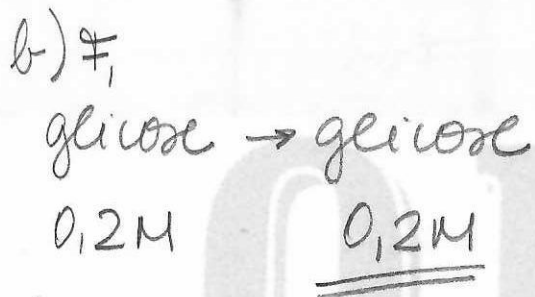 b) F₁
glicose → glicose
0,2M 0,2M